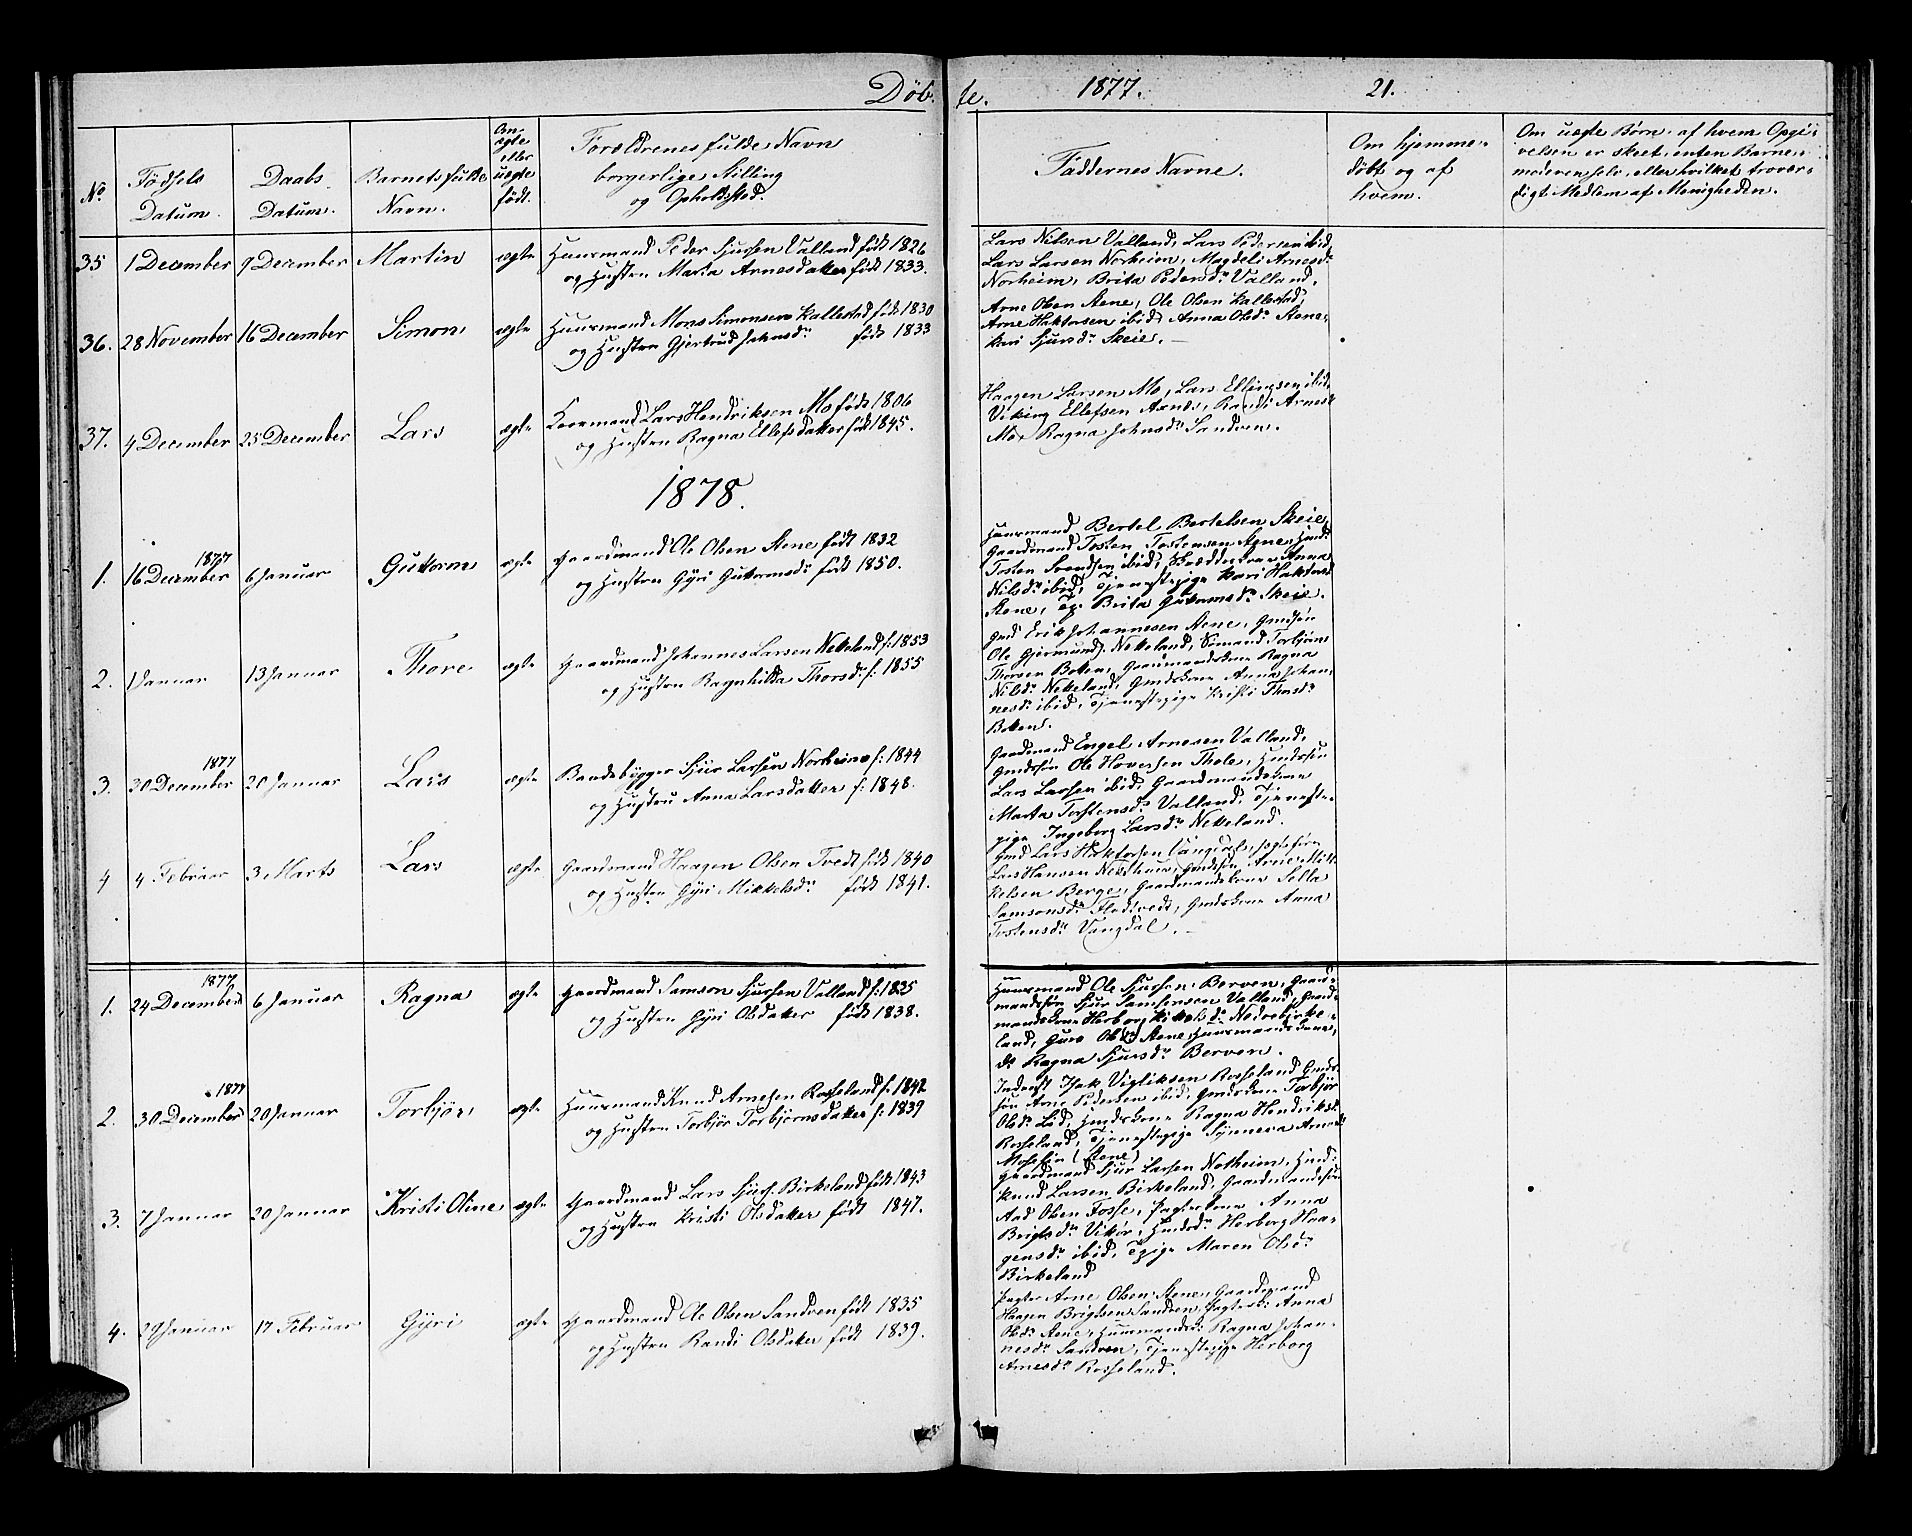 Døbte. 1877. 21.
No
Fødsels Datum.
Daabs Datum.
Barnets fulde Navn.
Om ægte eller uægte født.
Forældrenes fulde Navn
borgerlige Stilling
og Opholdssted.
Faddernes Navne.
Om hjemme-
døbt og af
hvem.
Om uægte Børn, af hvem Opgi-
velsen er skeet, enten Barne-
moderen selv, eller hvilket trovær-
digt Medlem af Menigheden.
35 1 December 9 December Martin ægte Huusmand Peder Sjursen Valland født 1826
og Hustru Marta Arnesdatter født 1833.
Lars Nilsen Valland, Lars Pedersen ibid,
Lars Larsen Norheim, Magdeli Arnesdr
Norheim, Brita Pedersdr Valland.
36. 28 November 16 December Simon ægte Huusmand Mons Simonsen Kallestad født 1830
og Hustru Gjertrud Johnsdr født 1833
Arne Olsen Aene, Ole Olsen Kallestad,
Arne Haktorsen ibid, Anna Olsdr Stene,
Kari Sjursdr Skeie.
37. 4 December 25 December Lars ægte Kaarmand Lars Hendriksen Mo født 1806
og Hustru Ragna Ellefsdatter født 1845.
Haagen Larsen Mo, Lars Ellingsen ibid,
Viking Ellefsen Axnes, Randi Arnesd
Mo, Ragna Johnsdr Sandven.
1878.
1. 1877 16 December 6 Januar Guttorm ægte Gaardmand Ole Olsen Aene født 1832
og Hustru Gyri Guttormsdr født 1850.
Huusmand Bertel Bertelsen Skeie,
Gaardmand Tosten Tostensen Aene, Hmd
Tosten Svendsen ibid, Anna
Nilsdr ibid, Tjenestepige Kari Haktorsd
Aene, Tp. Brita Guttormsdr Skeie.
2. 1 Januar 13 Januar Thore ægte Gaardmand Johannes Larsen Netteland f: 1853
og Hustru Ragnhilda Thorsdr f: 1855
Gmd Erik Johannesen Aene, Gmdsøn
Ole Gjermunds. Netteland, Sømand Torbjørn
Thorsen Botten, Gaardmandskone Ragna
Nilsdr Netteland, Gmdskone Anna Johan-
nesdr ibid, Tjenestepige Kristi Thorsdr
Botten.
3. 1877 30 December 20 Januar Lars ægte Baadebygger Sjur Larsen Norheim f: 1844
og Hustru Anna Larsdatter f: 1848.
Gaardmand Engel Arnesen Valland,
Gmdsøn Ole Haversen Thole, Hmdssøn
Lars Larsen ibid, Gaardmandskone
Marta Torstensdr Valland, Tjeneste-
pige Ingeborg Larsdr Netteland.
4 4 Februar 3 Marts Lars ægte Gaardmand Haagen Olsen Tvedt født 1840
og Hustru Gyri Mikkelsdr født 1841.
Gmd Lars Haktorsen Vangdal,
Lars Hansen Gmdsøn Arne Mik-
kelsen Berge, Gaardmandskone Sella
Samsonsdr Flotvedt, Gmdskone Anna
Tostensdr Vangdal.
1. 1877 24 December 6 Januar Ragna ægte Gaardmand Samson Sjursen Valland f: 1835
og Hustru Gyri Olsdatter født 1838.
Huusmand Ole Sjursen Berven, Gaard-
mandssøn Sjur Samsonsen Valland, Gaard-
mandskone Herborg Nedrebirke-
land, Guro Olsdr Aene, Huusmandskone,
Ragna Sjursdr Berven.
2. 1877 30 December 20 Januar Torbjør ægte Huusmand Knud Arnesen Rosseland f: 1842
og Hustru Torbjør Torbjørnsdatter f: 1839
Inderst Isak Vigliksen Rosseland, Gmds-
søn Arne Pedersen ibid, Gmdskone Torbjør
Olsdr Lid, Hmdskone Ragna Hendriksd
Rosseland, Tjenestepige Synneva Arnesd
(Aene)
3. 7 Januar 20 Januar Kristi Oline ægte Gaardmand Lars Sjurs. Birkeland født 1843
og Hustru Kristi Olsdatter født 1847.
Gaardmand Sjur Larsen Notheim, Hmd
Knud Larsen Birkeland, Gaardmandssøn
Aad Olsen Fosse, Pagterkone Anna
Brigtsdr Vikør, Herborg Haa-
gensdr ibid, Tpige Maren Olsdr
Birkeland
4. 29 Januar 17 Februar Gyri ægte Gaardmand Ole Olsen Sandven født 1835
og Hustru Randi Olsdatter født 1839.
Pagter Arne Olsen Aene, Gaardmand
Haagen Brigtsen Sandven, Pagterk: Anna
Olsdr Aene, Huusmandsk: Ragna Johan-
nesdr Sandven, Tjenestepige Herborg
Arnesdr Rosseland.